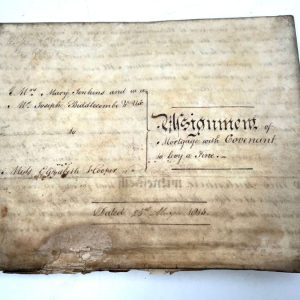 Mrs. Mary Jenkins and
Mr. Joseph Biddlecombe & Ux
to
Miss Elizabeth Hooper
Assignment of
Mortgage with Covenant
to levy a Fine.
Dated 25th